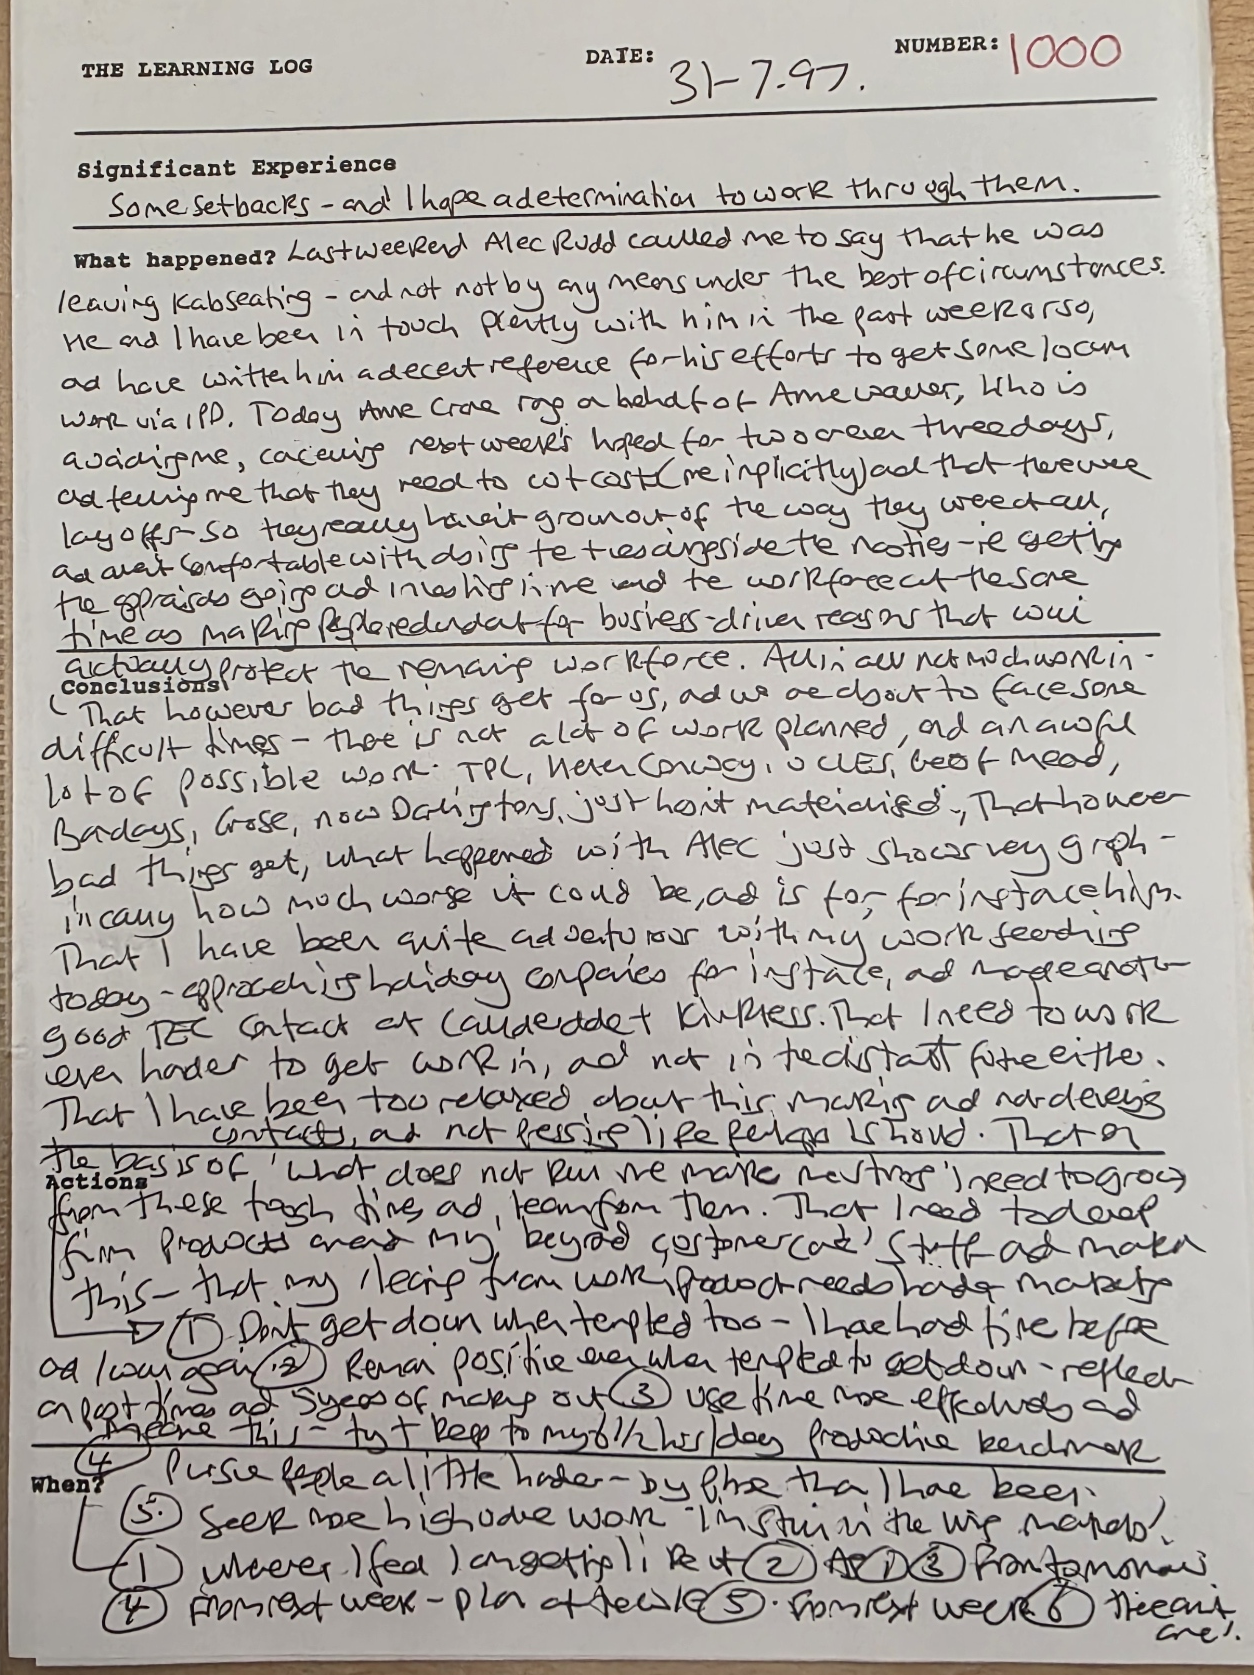 THE LEARNING LOG
DATE: 31-7.97.
NUMBER: 1000
Significant Experience
Some setbacks - and I hope a determination to work through them.
What happened? Last weekend Alec Rudd called me to say that he was
leaving Kab seating - and not not by any means under the best of circumstances.
He and I have been in touch plenty with him in the past week or so,
and have written him a decent reference for his efforts to get some locum
work via IPD. Today Anne Crane rang on behalf of Anne, who is
avoiding me, cancelling next week's hoped for two or even three days,
and telling me that they need to cut costs (me implicitly) and that there were
layoffs - so they really haven't grown out of the way they were at all,
and aren't comfortable with doing the alongside the nasties - ie getting
the appraisals going and investing time and the workforce at the same
time as making people redundant for business-driven reasons that will
actually protect the remaining workforce. All in all not much work in -
Conclusions
That however bad things get for us, and we are about to face some
difficult times - there is not a lot of work planned, and an awful
lot of possible work. TPL, Helen Conway, UCLES, Geof Mead,
Barclays, Crose, now Darlingtons, just hasn't materialised. That however
bad things get, what happened with Alec just shows very graph-
ically how much worse it could be, and is for, for instance him.
That I have been quite adventurous with my work searching
today - approaching holiday companies for instance, and made another
good TEC contact at Calderdale + Kirklees. That I need to work
even harder to get work in, and not in the distant future either.
That I have been too relaxed about this, making and not
contacts, and not pressing like perhaps I should. That on
the basis of 'what does not kill me makes me strong' I need to grow
Actions
from these tough times and learn from them. That I need to develop
firm products around my 'beyond customer care' stuff and market
this - that my 'learning from work' product needs harder marketing
(1) Don't get down when tempted too - I have had time before
and I will again (2) Remain positive even when tempted to get down - reflect
on past times and 5 years of making out (3) Use time more effectively and
this - try + keep to my 6 1/2 hrs/day productive benchmark
(4) Pursue people a little harder - by phone than I have been.
When?
(5.) Seek more high value work
(1) Whenever I feel I am getting like it (2) As (1) (3) From tomorrow
(4) From next week - plan (5). From next week (6)